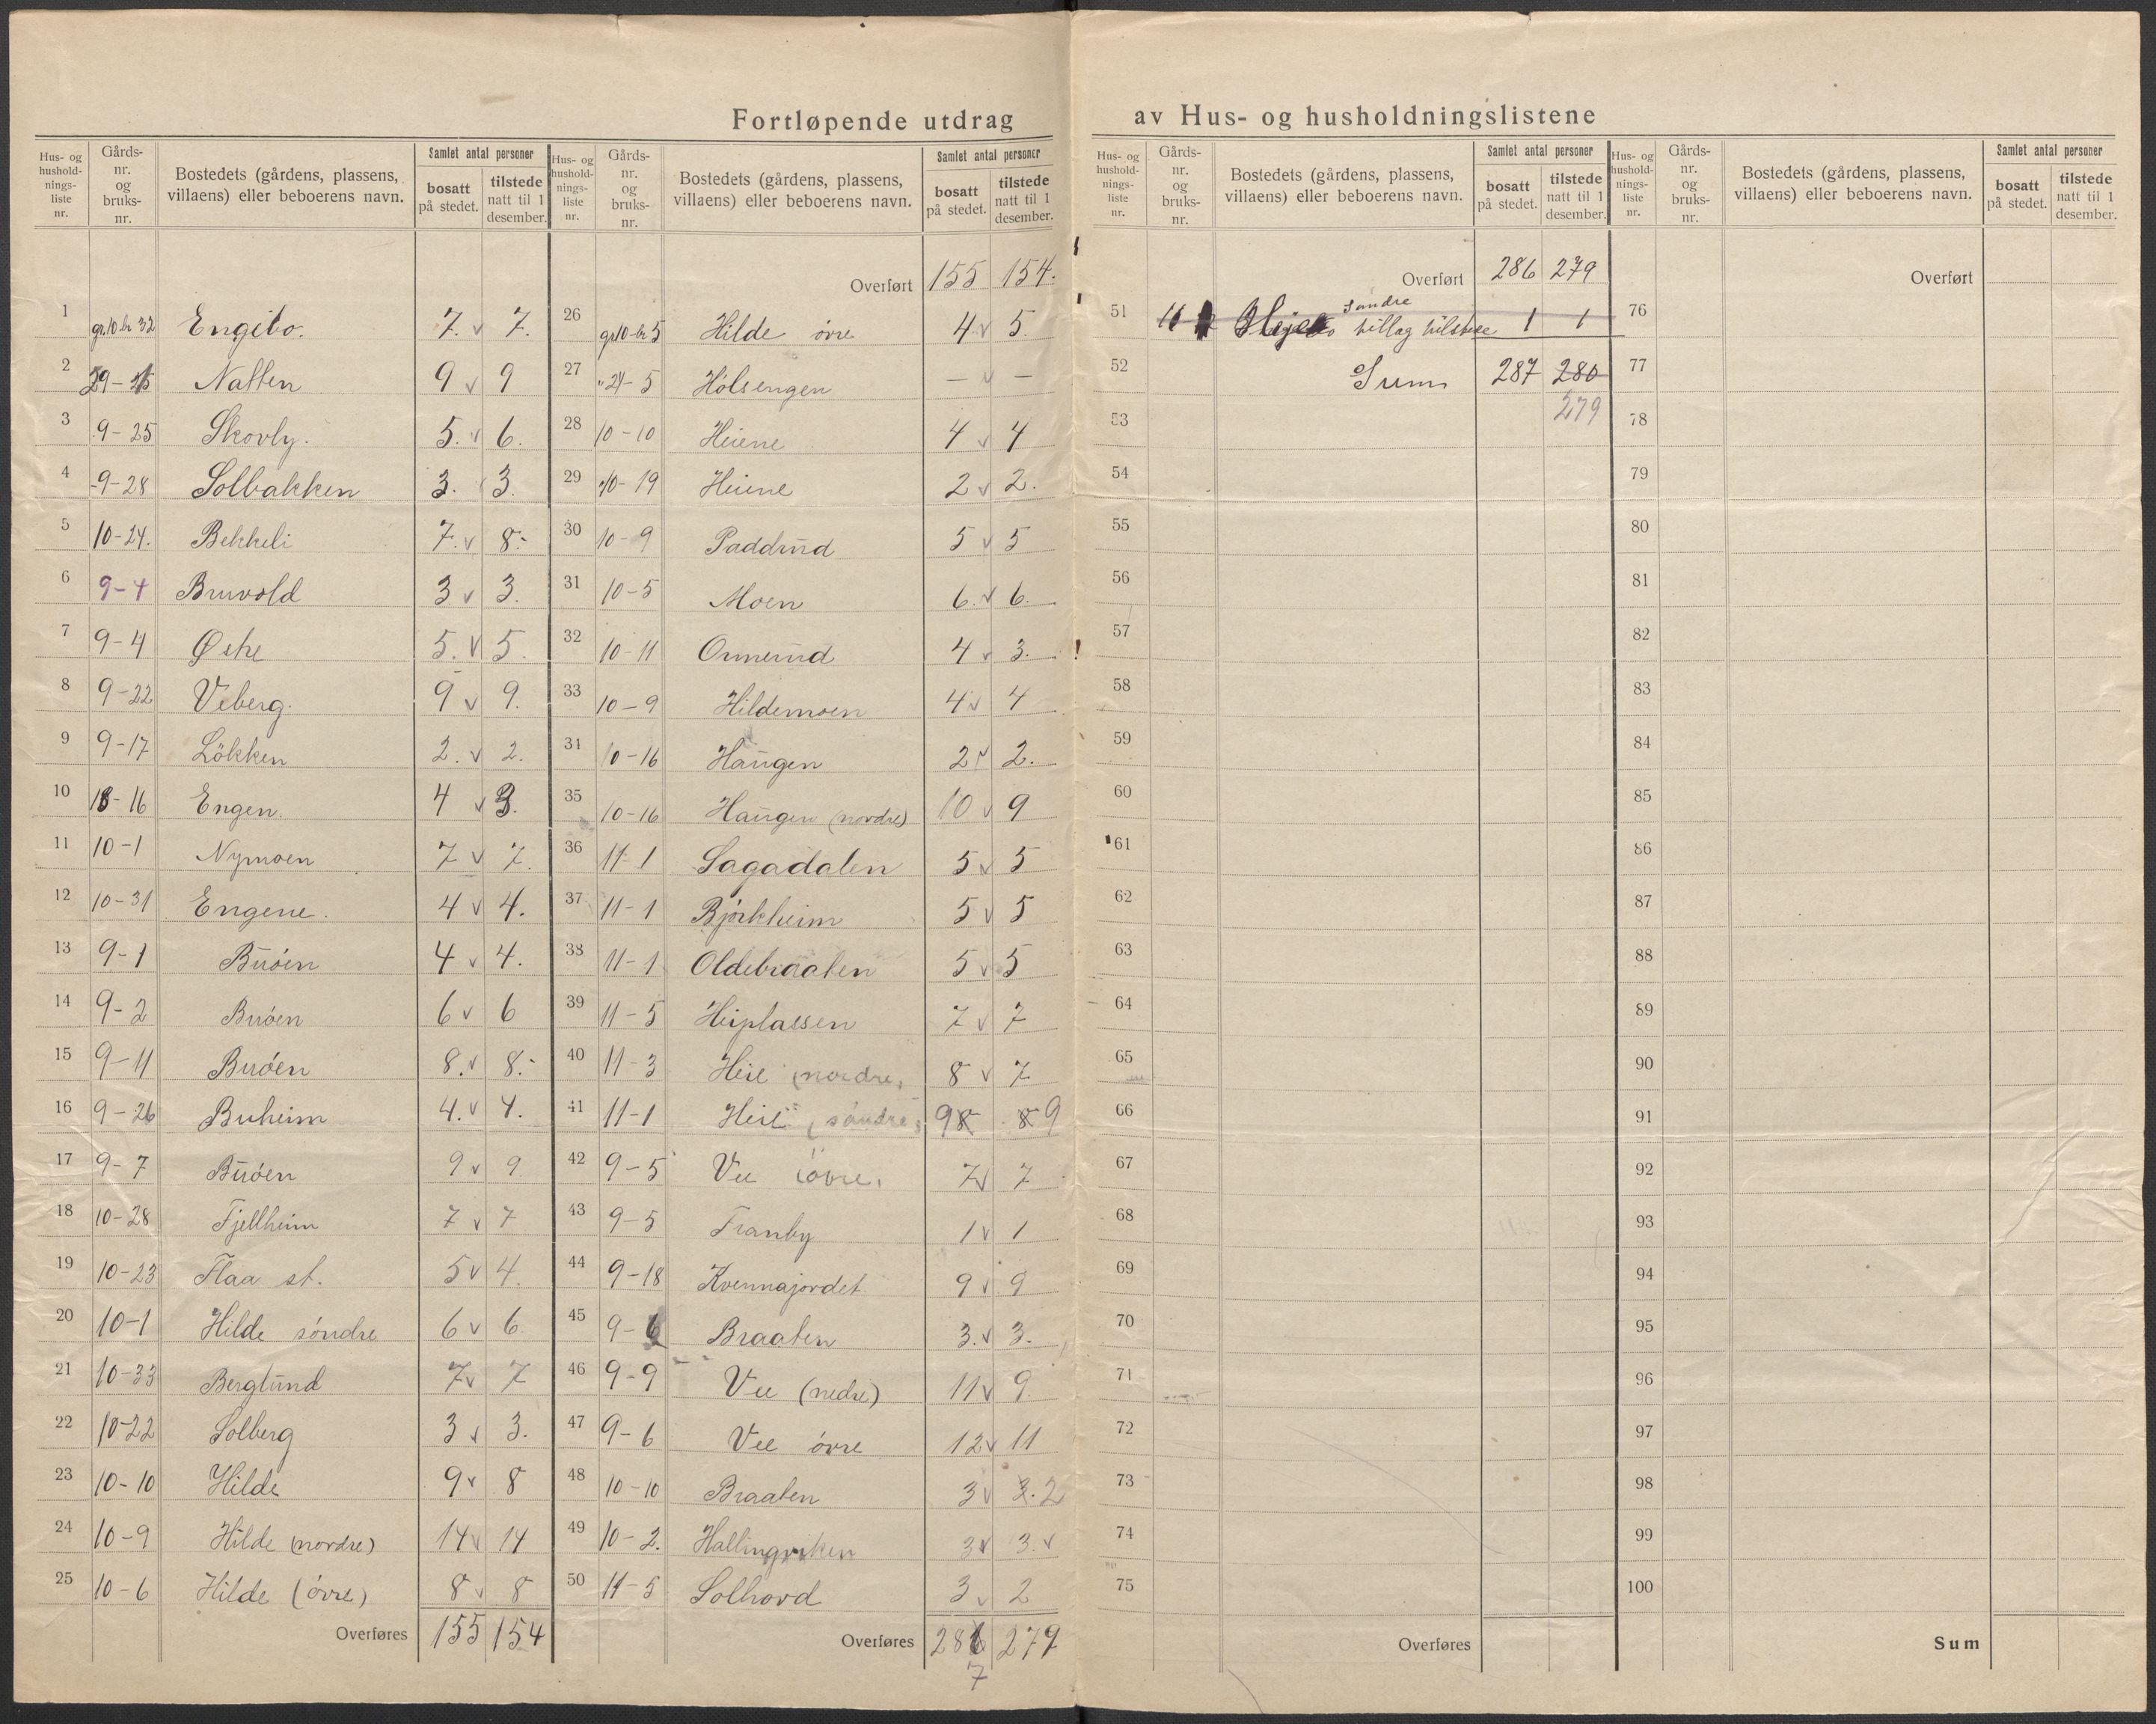 Fortløpende utdrag av Hus- og husholdningslistene
Hus- og hushold- nings- liste nr. Gårds- nr. og bruks- nr. Bostedets (gårdens, plassens, villaens) eller beboerens navn. Samlet antal personer bosatt på stedet. tilstede natt til 1 desember.
1 gr.10 br 32 Engebo. 7. v 7.
2 9 - Natten 9 v 9
3 9-25 Skovly. 5. v 6.
4 9-28 Solbakken 3. v 3.
5 10-24. Bekkeli 7. v 8.
6 9-4 Bruvold 3 v 3.
7 9-4 Øske 5. v 5.
8 9-22 Veberg. 9 v 9.
9 9-17 Lökken 2. v 2.
10 18-16 Engen. 4 v 3.
11 10-1 Nymoen 7 v 7.
12 10-31 Engene. 4 v 4.
13 9-1 Buóen 4 v 4.
14 9-2 Buóen 6 v 6
15 9-11 Buóen 8. v 8.
16 9-26 Buheim 4. v 4.
17 9-7 Buóen 9 v 9
18 10-28 Fjellheim 7 v 7
19 10-23 Flaa st. 5 v 4.
20 10-1 Hilde sóndre 6 v 6
21 10-33 Berglund 7 v 7
22 10-22 Solberg 3 v 3.
23 10-10 Hilde 9 v 8
24 10-9 Hilde (nordre) 14 v 14
25 10-6 Hilde (óvre) 8 v 8
Overføres 155 154
Hus- og hushold- nings- liste nr. Gårds- nr. og bruks- nr. Bostedets (gårdens, plassens, villaens) eller beboerens navn. Samlet antal personer bosatt på stedet. tilstede natt til 1 desember.
Overført 155 154.
26 gr10-br 5 Hilde óvre 4 v 5.
27 " 24-5 Hólsengen — v —
28 10-10 Heiene 4 v 4
29 10-19 Heiene 2 v 2.
30 10-9 Paddrud 5 v 5
31 10-5 Moen 6. v 6.
32 10-11 Onnerud 4 v 3.
33 10-9 Hildemoen 4 v 4
34 10-16 Haugen 2 v 2.
35 10-16 Haugen (nordre) 10 v 9
36 11-1 Sagadalen 5 v 5
37 11-1 Bjórkheim 5 v 5
38 11-1 Oldebraaten 5 v 5
39 11-5 Heiplassen 7 v 7
40 11-3 Heie (nordre) 8 v 7
41 11-1 Heie (sóndre) 9 8 8 9
42 9-5 Vee (óvre) 7 v 7
43 9-5 Tranby 1 v 1
44 9-18 Kvennajordet 9 v 9
45 9-6 Braaten 3. v 3.
46 9-9 Vee (nedre) 11 v 9.
47 9-6 Vee óvre 12 v 11
48 10-10 Braaten 3 v 3. 2
49 10-2. Hallingrken 3 v 3. v
50 11-5 Solhovd 3 v 2
Overføres 286 279
7
Hus- og hushold- nings- liste nr. Gårds- nr. og bruks- nr. Bostedets (gårdens, plassens, villaens) eller beboerens navn. Samlet antal personer bosatt på stedet. tilstede natt til 1 desember.
Overført 286 279
Søndre
51 11 tillag 1 1
52 Sum 287 280
53 279
54
55
56
57
58
59
60
61
62
63
64
65
66
67
68
69
70
71
72
73
74
75
Overføres
Hus- og hushold- nings- liste nr. Gårds- nr. og bruks- nr. Bostedets (gårdens, plassens, villaens) eller beboerens navn. Samlet antal personer bosatt på stedet. tilstede natt til 1 desember.
Overført
76
77
78
79
80
81
82
83
84
85
86
87
88
89
90
91
92
93
94
95
96
97
98
99
100
Sum